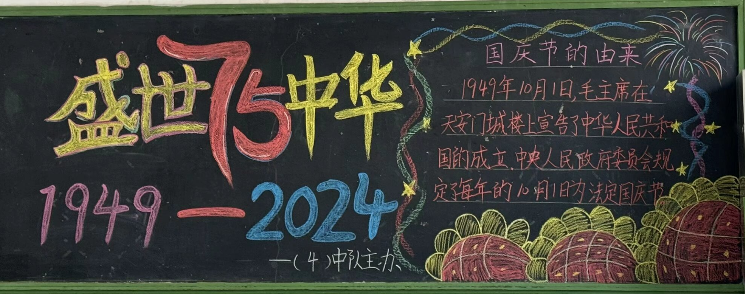 盛世75中华
1949—2024
一(4)中队主办
国庆节的由来
1949年10月1日,毛主席在
天安门城楼上宣告了中华人民共和
国的成立、中央人民政府委员会规
定了每年的10月1日为法定国庆节